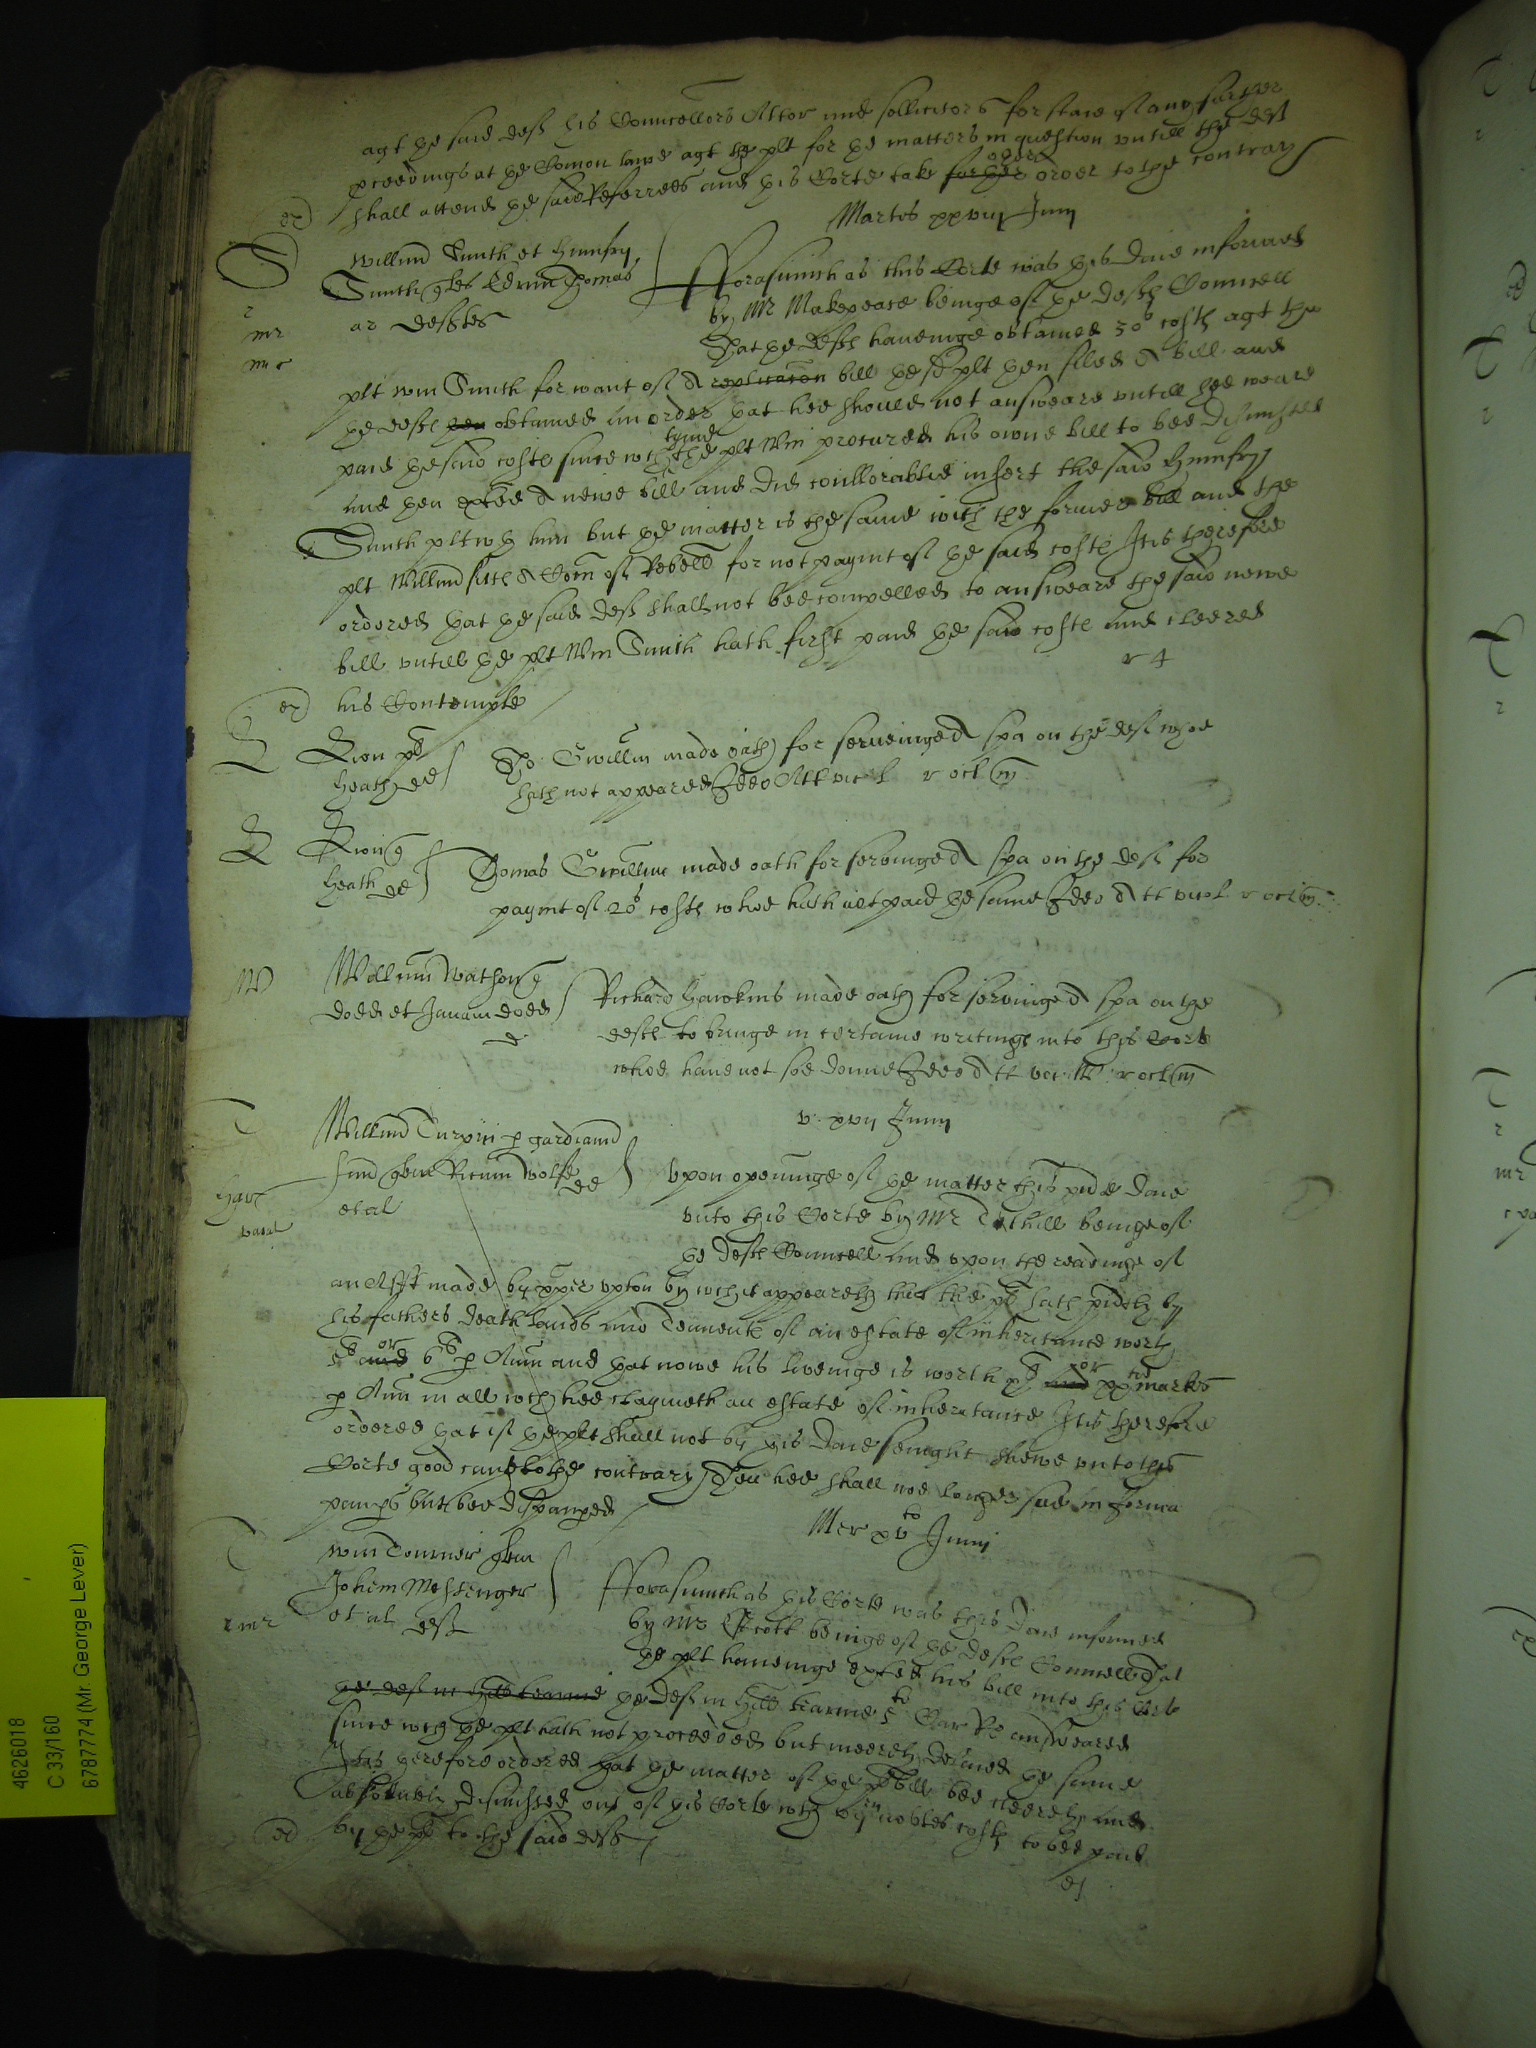 agt the said deft his Councellors Attor and sollicitors for staie of any further
proceedings at the Comon lawe agt the plt for the matters in question untill the deft
shall attend the said Referrees and this Corte take further other order to the contrary
Martis xxviij Junij
Willmd Smith et Humfry
Smith qtes Edwin Thomas
ar defftes
Forasmuch as this Corte was this daie informed
by Mr Makepeace beinge of the deftes Councell
That the deftes haveinge obtained 50s costes agt the
plt Wm Smith for want of A replicacon bill the sd plt then filed A bill and
the deftes then obtained an order that hee should not answeare untill hee weare
paid the said costes since wch tyme the plt Wm procured his owne bill to bee dismissed
and then exhibited A newe bill and did coullorablie insert the said Humfry
Smith plt wth him but the matter is the same with the former bill and the
plt Willmd sitts A Com of Rebellion for not paymt of the said costes It is therefore
ordered that the said deft shall not bee compelled to answeare the said newe
bill untill the plt Wm Smith hath first paid the said costes and cleered
his Contempte
r 4
heath de
Tho: Gwillim made oath for serveinge A spa on the deft whoe
hath not appeared Ideo Att vicel r oct m
heath de
Thomas Gwillim made oath for servinge A spa on the deft for
paymt of 20s costes whoe hath not paid the same Ideo A tt vicel r oct m
Willmum Watson q
Dodd et Janam Dodd
d
Richard Hawkins made oath for servinge A spa on the
deftes to bringe in certaine writinges into this Corte
whoe have not soe donne Ideo A tt vic r oct m
v. xvij Junij
Willmd Turpin p gardianu
suu quer Ricum Wolfe de
et al
Upon openinge of the matter this pnte daie
unto this Corte by Mr Tothill beinge of
the deftes Councell and upon the readinge of
an Afft made by xper Upton by wch it appeareth that the plt hath pntly by
his fathers death lands and Tennemts of an estate of inheritance worth
5l and or 6l p Annu and that nowe his liveinge is worth xxl and or xxtie markes
p Annu in all wch hee claymeth an estate of inheritance It is therefore
ordered that if the plt shall not by this daie senight shewe unto this
Corte good cause to the contrary Then hee shall noe longer sue in forma
paupis but bee dispaupered
Mer xvto Junij
Wm Tourner quer
Johem Messenger
et al deft
Forasmuch as this Corte was this daie informed
by Mr Scott beinge of the deftes Councell That
the plt haveinge exhibited his bill into this Corte
the deft in Hill tearme the deft in Hill tearme 5to Car Rs answeared
since wch the plt hath not proceeded but meerely delaied the same
It is therefore ordered that the matter of the plts bill bee cleerely and
absolutely dismissed out of this Corte wth vijen nobles costs to bee paid
by the plt to the said defts
4626018
C 33/160
6787774 (Mr. George Lever)